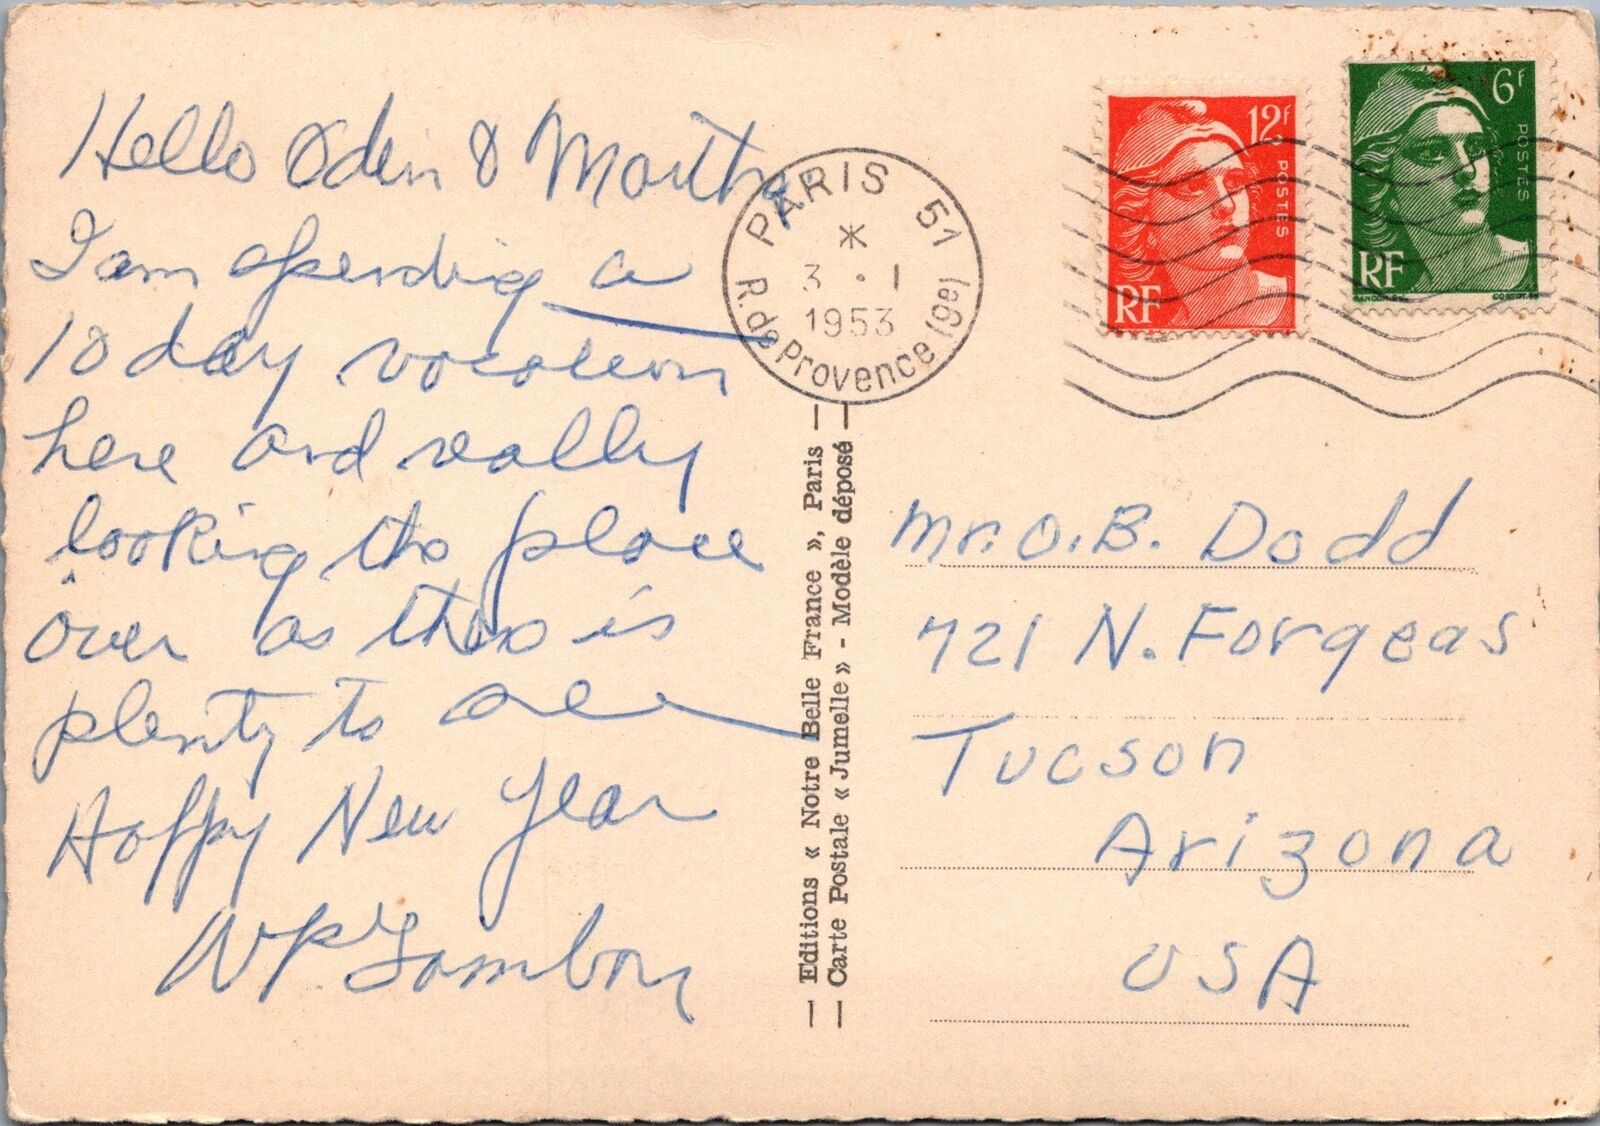 Hello Oden & Martha
I am spending a
10 day vacation
here and really
looking the place
over as there is
plenty to see
Happy New Year
W.P.
PARIS 51
3 . 1
1953
R. de Provence (9e)
12f
POSTES
RF
6f
POSTES
RF
GANDON DEL.
— Editions « Notre Belle France », Paris —
— Carte Postale « Jumelle » - Modèle déposé —
Mr. O. B. Dodd
721 N. Forgeas
Tucson
Arizona
USA